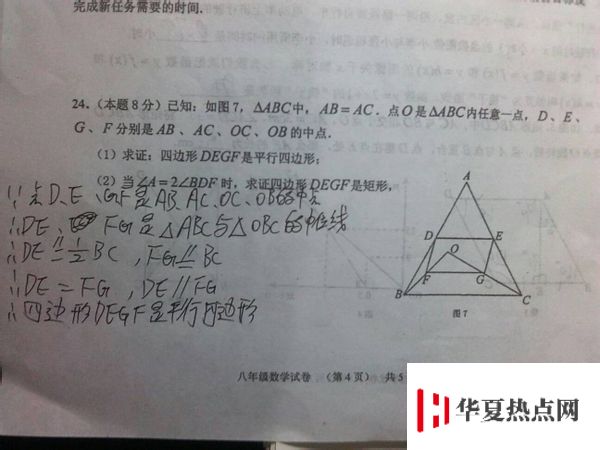 完成新任务需要的时间.
24.（本题8分）已知：如图7，△ABC中，AB=AC．点O是△ABC内任意一点，D、E、
G、F分别是AB、AC、OC、OB的中点.
（1）求证：四边形DEGF是平行四边形；
（2）当∠A=2∠BDF时，求证四边形DEGF是矩形，
∵点D、E、GF是AB、AC、OC、OB的中点
∴DE、FG是△ABC与△OBC的中位线
∴DE∥=½BC，FG∥BC
∴DE=FG，DE∥FG
∴四边形DEGF是平行四边形
A
D
E
O
F
G
B
C
图7
八年级数学试卷 （第4页） 共5
华夏热点网